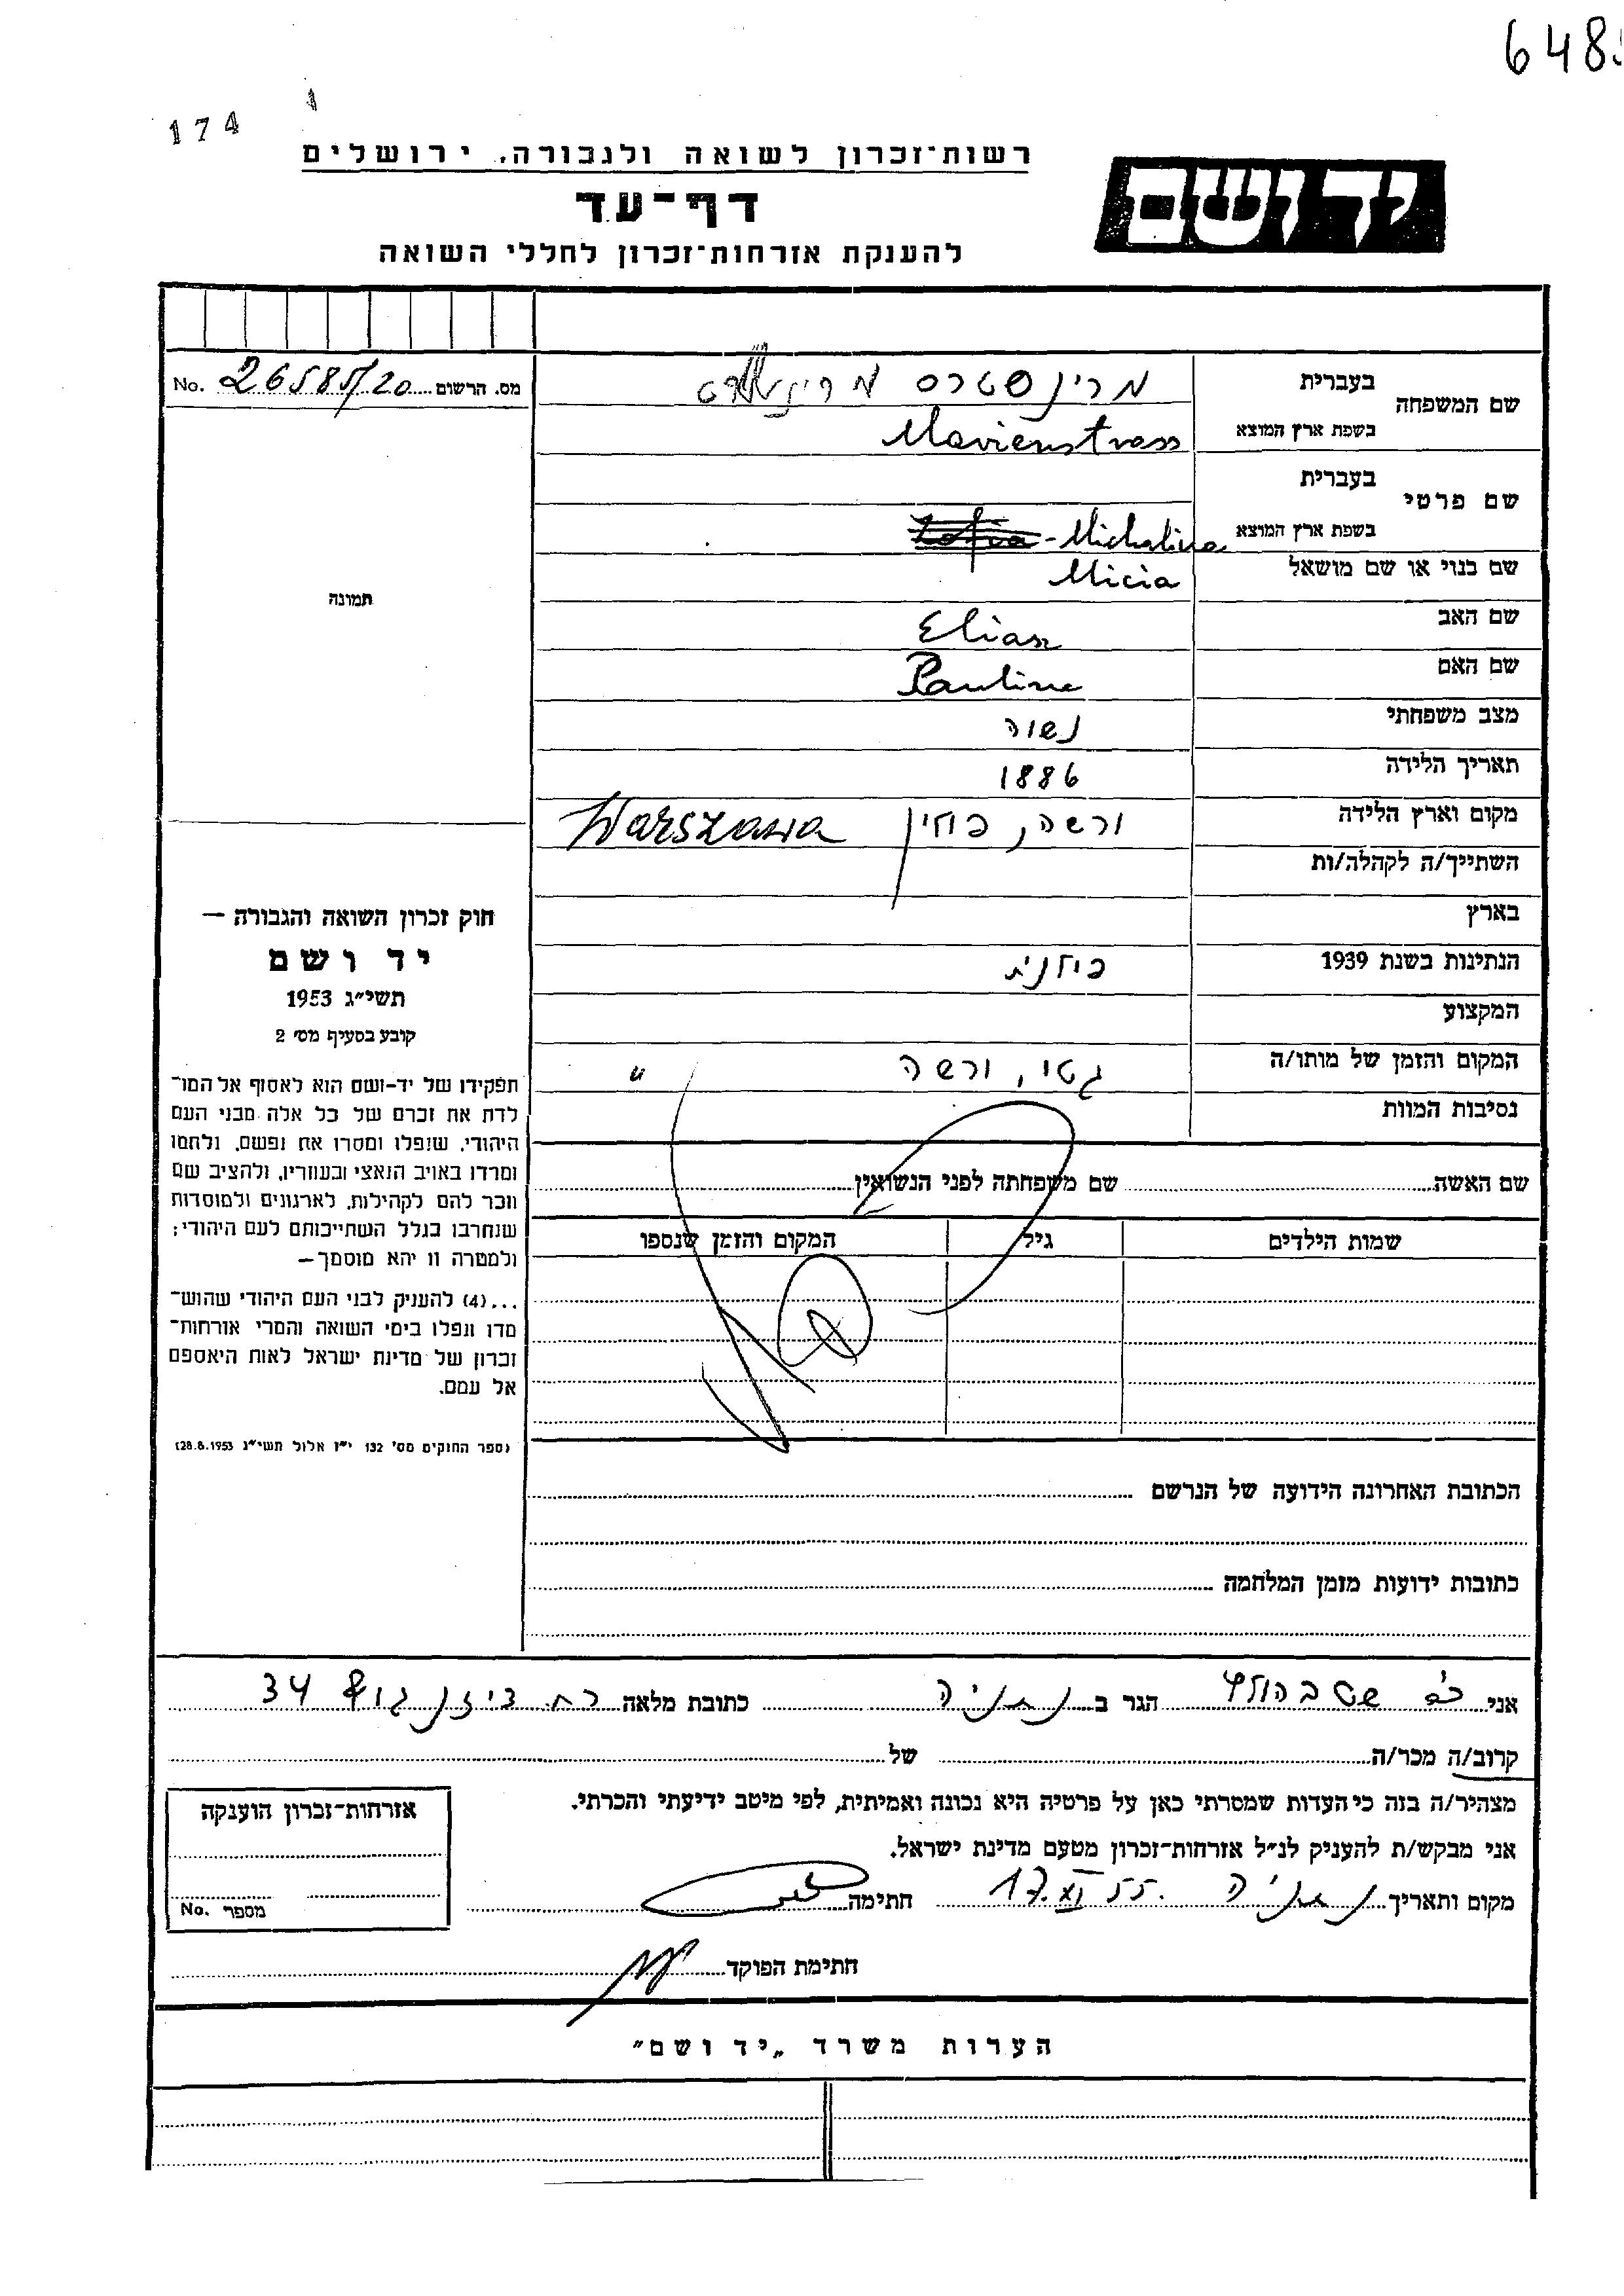 648
174
רשות־זכרון לשואה ולגבורה, ירושלים
יד ושם
דף־עד
להענקת אזרחות־זכרון לחללי השואה
מס. הרשום 26585/20 No.
שם המשפחה
בעברית מרינשטרס
בשפת ארץ המוצא Marienstrass
שם פרטי
בעברית
בשפת ארץ המוצא Michalina
שם בנוי או שם מושאל Micia
שם האב Eliasz
שם האם Paulina
מצב משפחתי נשוה
תאריך הלידה 1886
מקום וארץ הלידה ורשה, פולין Warszawa
השתייך/ה לקהלה/ות
בארץ
הנתינות בשנת 1939 פולנית
המקצוע
המקום והזמן של מותו/ה גטו, ורשה "
נסיבות המוות
שם האשה שם משפחתה לפני הנשואין
שמות הילדים גיל המקום והזמן שנספו
הכתובת האחרונה הידועה של הנרשם
כתובות ידועות מזמן המלחמה
תמונה
חוק זכרון השואה והגבורה —
יד ושם
תשי״ג 1953
קובע בסעיף מס׳ 2
תפקידו של יד-ושם הוא לאסוף אל המו־
לדת את זכרם של כל אלה מבני העם
היהודי, שנפלו ומסרו את נפשם, נלחמו
ומרדו באויב הנאצי ובעוזריו, ולהציב שם
וזכר להם לקהילות, לארגונים ולמוסדות
שנחרבו בגלל השתייכותם לעם היהודי;
ולמטרה זו יהא מוסמך—
...(4) להעניק לבני העם היהודי שהוש־
מדו ונפלו בימי השואה והמרי אזרחות־
זכרון של מדינת ישראל לאות היאספם
אל עמם.
(ספר החוקים מס׳ 132 י״ז אלול תשי״ג 28.8.1953)
אני הגר ב נתניה כתובת מלאה רח׳ דיזנגוף 34
קרוב/ה מכר/ה של
מצהיר/ה בזה כי העדות שמסרתי כאן על פרטיה היא נכונה ואמיתית, לפי מיטב ידיעתי והכרתי.
אני מבקש/ת להעניק לנ״ל אזרחות־זכרון מטעם מדינת ישראל.
מקום ותאריך נתניה 17.XI.55 חתימה
חתימת הפוקד
אזרחות־זכרון הוענקה
מספר No.
הערות משרד „יד ושם״